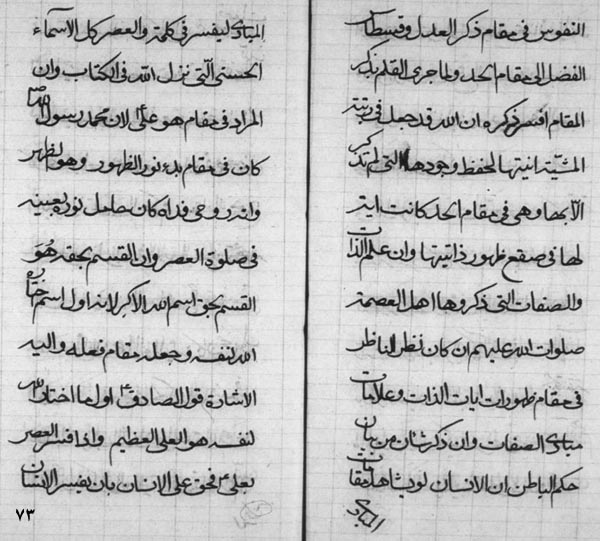 النفوس فی مقام ذکر العدل وقسطاس
الفضل الی مقام الحد ولما جری القلم بذکر
المقام افسر ذکره ان الله قد جعل فی رتبة
المشیة انیتها لحفظ وجودها التی لم تذکر
الّا بها وهی فی مقام الحد کانت ایة
لها فی صقع ظهور ذاتیتها وان علم الذات
والصفات التی ذکروها اهل العصمة
صلوات الله علیهم ان کان نظر الناظر
فی مقام ظهورات ایات الذات وعلامات
مبادی الصفات وان ذکر شان من بیان
حکم الباطن ان الانسان لو یشاهد مقامات
المبادی
المبادی لیفسر فی کلمة والعصر کل الاسماء
الحسنی التی نزل الله فی الکتاب وان
المراد فی مقام هو علی لان محمد رسول الله
کان فی مقام بدء نور الظهور وهو الظهر
وانه روحی فداه کان حامل نوره بعینه
فی صلوة العصر وان القسم بحقه هو
القسم بحق اسم الله الاکبر لانه اول اسم اختاره
الله لنفسه وجعله مقام فعله والیه
الاشارة قول الصادق ع اول ما اختار الله
لنفسه هو العلی العظیم واذا فسر العصر
بعلی ع فحق علی الانسان بان یفسر الانسان
۷۳